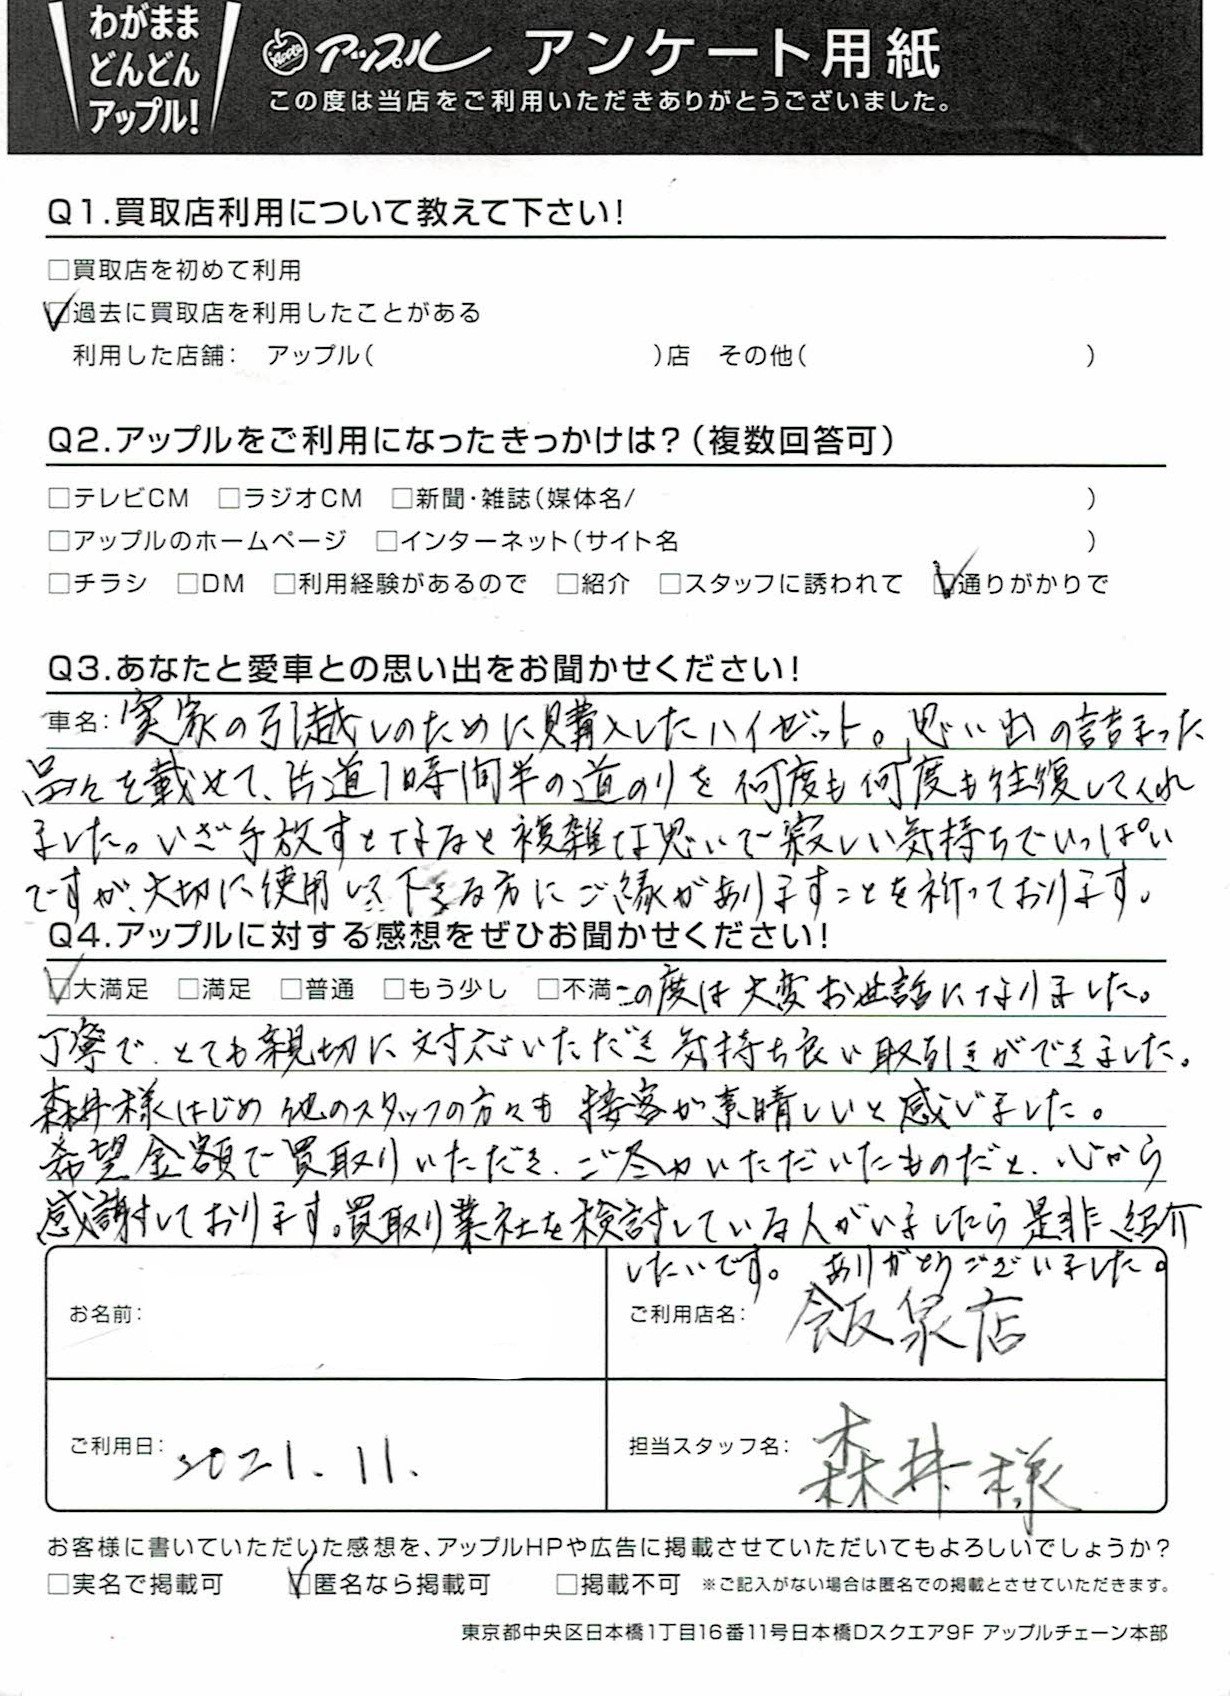 わがまま
どんどん
アップル!
Apple アップル アンケート用紙
この度は当店をご利用いただきありがとうございました。
Q1.買取店利用について教えて下さい!
□買取店を初めて利用
☑過去に買取店を利用したことがある
利用した店舗: アップル( )店 その他( )
Q2.アップルをご利用になったきっかけは?(複数回答可)
□テレビCM □ラジオCM □新聞・雑誌(媒体名/ )
□アップルのホームページ □インターネット(サイト名 )
□チラシ □DM □利用経験があるので □紹介 □スタッフに誘われて ☑通りがかりで
Q3.あなたと愛車との思い出をお聞かせください!
車名: 実家の引越しのために購入したハイゼット。思い出の詰まった
品々を載せて、片道1時間半の道のりを何度も何度も往復してくれ
ました。いざ手放すとなると複雑な思いで寂しい気持ちでいっぱい
ですが、大切に使用して下さる方にご縁がありますことを祈っております。
Q4.アップルに対する感想をぜひお聞かせください!
☑大満足 □満足 □普通 □もう少し □不満 この度は大変お世話になりました。
丁寧で、とても親切に対応いただき気持ち良い取引きができました。
森井様はじめ他のスタッフの方々も接客が素晴しいと感じました。
希望金額で買取りいただき、ご尽力いただいたものだと、心から
感謝しております。買取り業社を検討している人がいましたら是非紹介
したいです。ありがとうございました。
お名前:
ご利用店名: 飯泉店
ご利用日: 2021.11.
担当スタッフ名: 森井様
お客様に書いていただいた感想を、アップルHPや広告に掲載させていただいてもよろしいでしょうか?
□実名で掲載可 ☑匿名なら掲載可 □掲載不可 ※ご記入がない場合は匿名での掲載とさせていただきます。
東京都中央区日本橋1丁目16番11号日本橋Dスクエア9F アップルチェーン本部